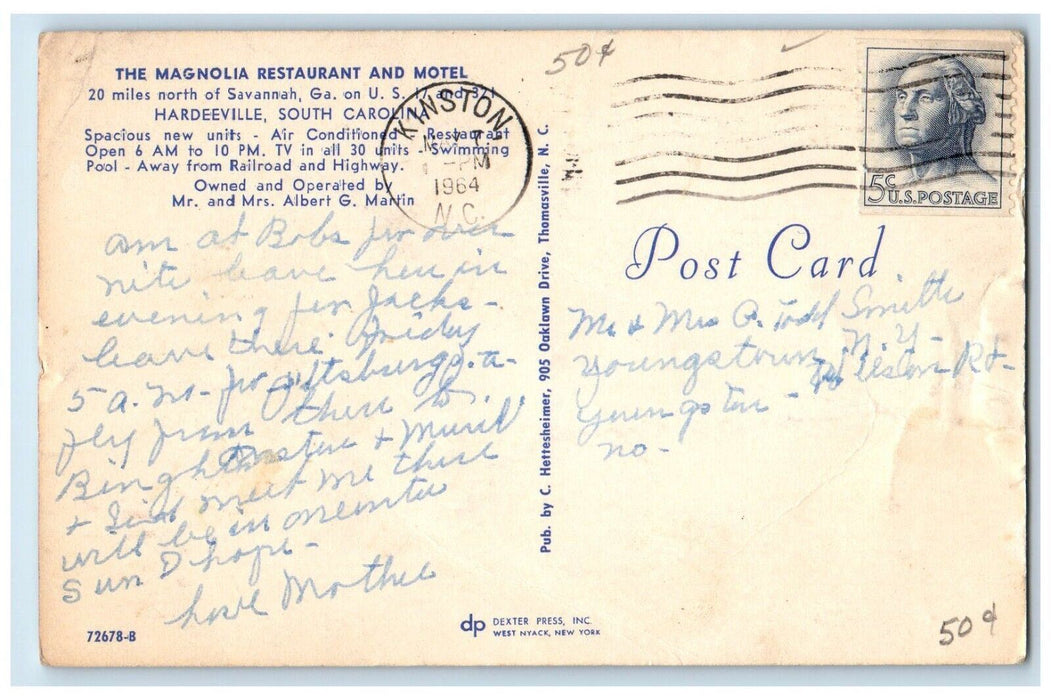 THE MAGNOLIA RESTAURANT AND MOTEL
20 miles north of Savannah, Ga. on U. S. and
HARDEEVILLE, SOUTH CAROLINA
Spacious new units - Air Conditioned - Restaurant
Open 6 AM to 10 PM, TV in all 30 units - Swimming
Pool - Away from Railroad and Highway.
Owned and Operated by
Mr. and Mrs. Albert G. Martin
KINSTON
PM
1964
N.C.
50¢
5c U.S. POSTAGE
am at Bobs for over
nite leave here in
evening for Jacks -
leave there Friday
5 a. m - for Pittsburgg. a-
fly from there to
Binghamston + Muriel
+ meet me there
will be in
Sun I hope -
Love Mother
Pub. by C. Hettesheimer, 905 Oaklawn Drive, Thomasville, N. C.
Post Card
Mr & Mrs P. Todd Smith
Youngstown N.Y -
Wilson Rd -
Youngston -
no -
72678-B
dp DEXTER PRESS, INC.
WEST NYACK, NEW YORK
50¢